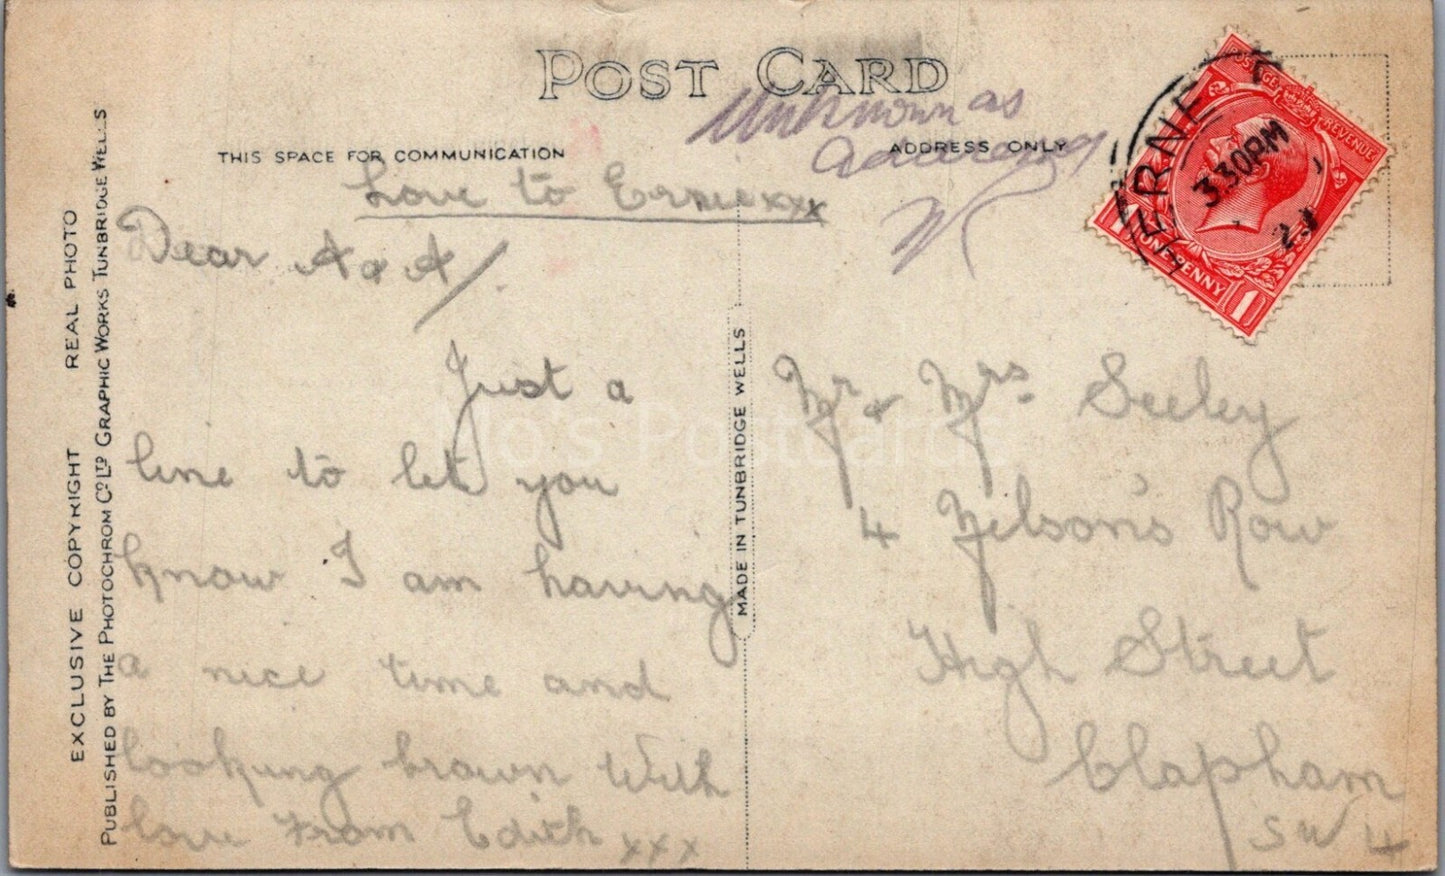 POST CARD
THIS SPACE FOR COMMUNICATION
ADDRESS ONLY
Unknown as
Love to Ernie xxx
Dear A & A/.
Just a
line to let you
know I am having
a nice time and
looking brown with
love from Edith xxx
EXCLUSIVE COPYRIGHT REAL PHOTO
PUBLISHED BY THE PHOTOCHROM CO LTD GRAPHIC WORKS TUNBRIDGE WELLS
MADE IN TUNBRIDGE WELLS
HERNE
3 30 PM
POSTAGE REVENUE
ONE PENNY
1
Mr & Mrs Seeley
4 Nelson's Row
High Street
Clapham
SW 4
Mo's Postcards